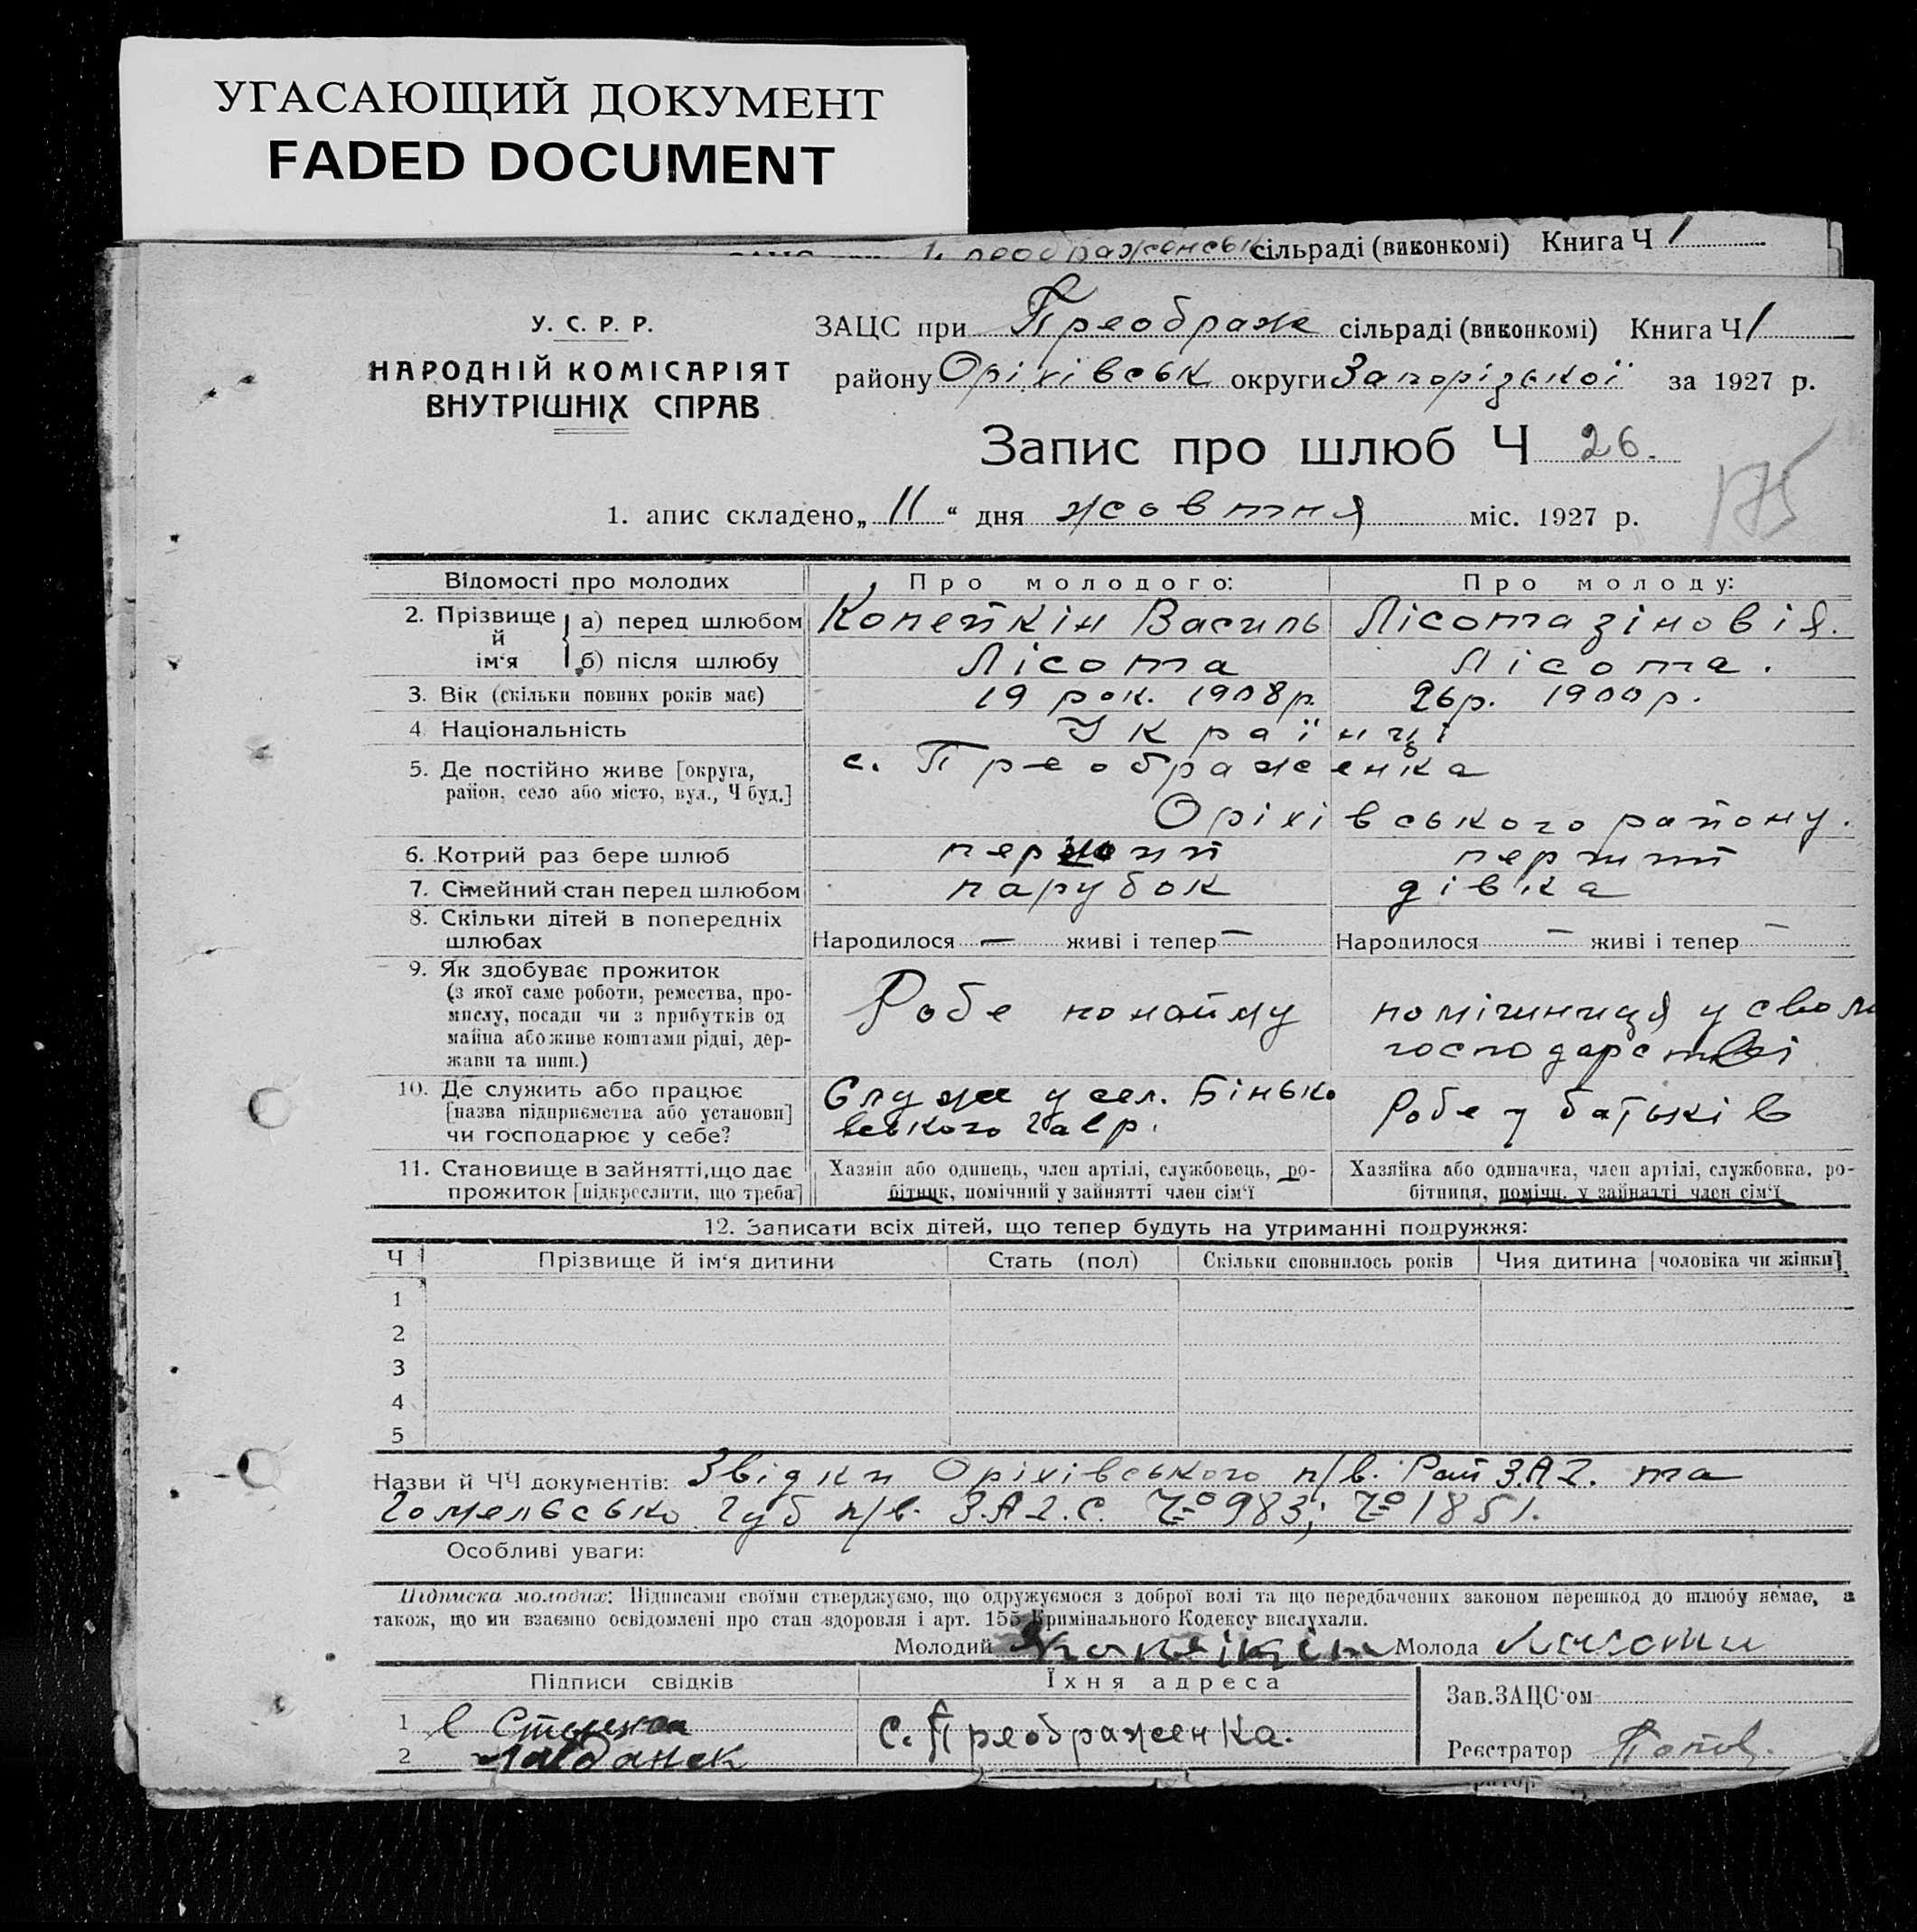 УГАСАЮЩИЙ ДОКУМЕНТ
FADED DOCUMENT
сільраді (виконкомі) Книга Ч 1
У. С. Р. Р.
НАРОДНІЙ КОМІСАРІЯТ
ВНУТРІШНІХ СПРАВ
ЗАЦС при Преображ сільраді (виконкомі) Книга Ч 1
району Оріхівськ округи Запорізької за 1927 р.
Запис про шлюб Ч 26.
175
1. апис складено „11“ дня жовтня міс. 1927 р.
Відомості про молодих Про молодого: Про молоду:
2. Прізвище й ім‘я а) перед шлюбом Копейкін Василь Лісота Зіновія.
б) після шлюбу Лісота Лісота.
3. Вік (скільки повних років має) 19 рок. 1908р. 26р. 1900р.
4 Національність Українці
5. Де постійно живе [округа, с. Преображенка
район, село або місто, вул., Ч буд.]
Оріхівського району.
6. Котрий раз бере шлюб перший перший
7. Сімейний стан перед шлюбом парубок дівка
8. Скільки дітей в попередніх
шлюбах Народилося — живі і тепер — Народилося — живі і тепер —
9. Як здобуває прожиток
(з якої саме роботи, ремества, про-
мислу, посади чи з прибутків од
майна або живе коштами рідні, дер-
жави та инш.)
Робе понайму помічниця у своїм
господарстві
10. Де служить або працює
[назва підприємства або установи]
чи господарює у себе?
Служе у сел. Бінько
вського Гавр.
Робе у батьків
11. Становище в зайнятті, що дає
прожиток [підкреслити, що треба]
Хазяін або одинець, член артілі, службовець, ро-
бітник, помічний у зайнятті член сім‘ї
Хазяйка або одиначка, член артілі, службовка, ро-
бітниця, помічн. у зайнятті член сім‘ї
12. Записати всіх дітей, що тепер будуть на утриманні подружжя:
Ч Прізвище й ім‘я дитини Стать (пол) Скільки сповнилось років Чия дитина [чоловіка чи жінки]
1
2
3
4
5
Назви й ЧЧ документів: Звідки Оріхівського п/в. Рай З.А.Г. та
Гомельсько Губ п/в. З.А.Г.С. № 983; № 1851.
Особливі уваги:
Підписка молодих: Підписами своїми стверджуємо, що одружуємося з доброї волі та що передбачених законом перешкод до шлюбу немає, а
також, що ми взаємно освідомлені про стан здоровля і арт. 155 Кримінального Кодексу вислухали.
Молодий Молода
Підписи свідків Їхня адреса
Зав.ЗАЦС‘ом
1
2
С. Преображенка.
Реєстратор Попов.